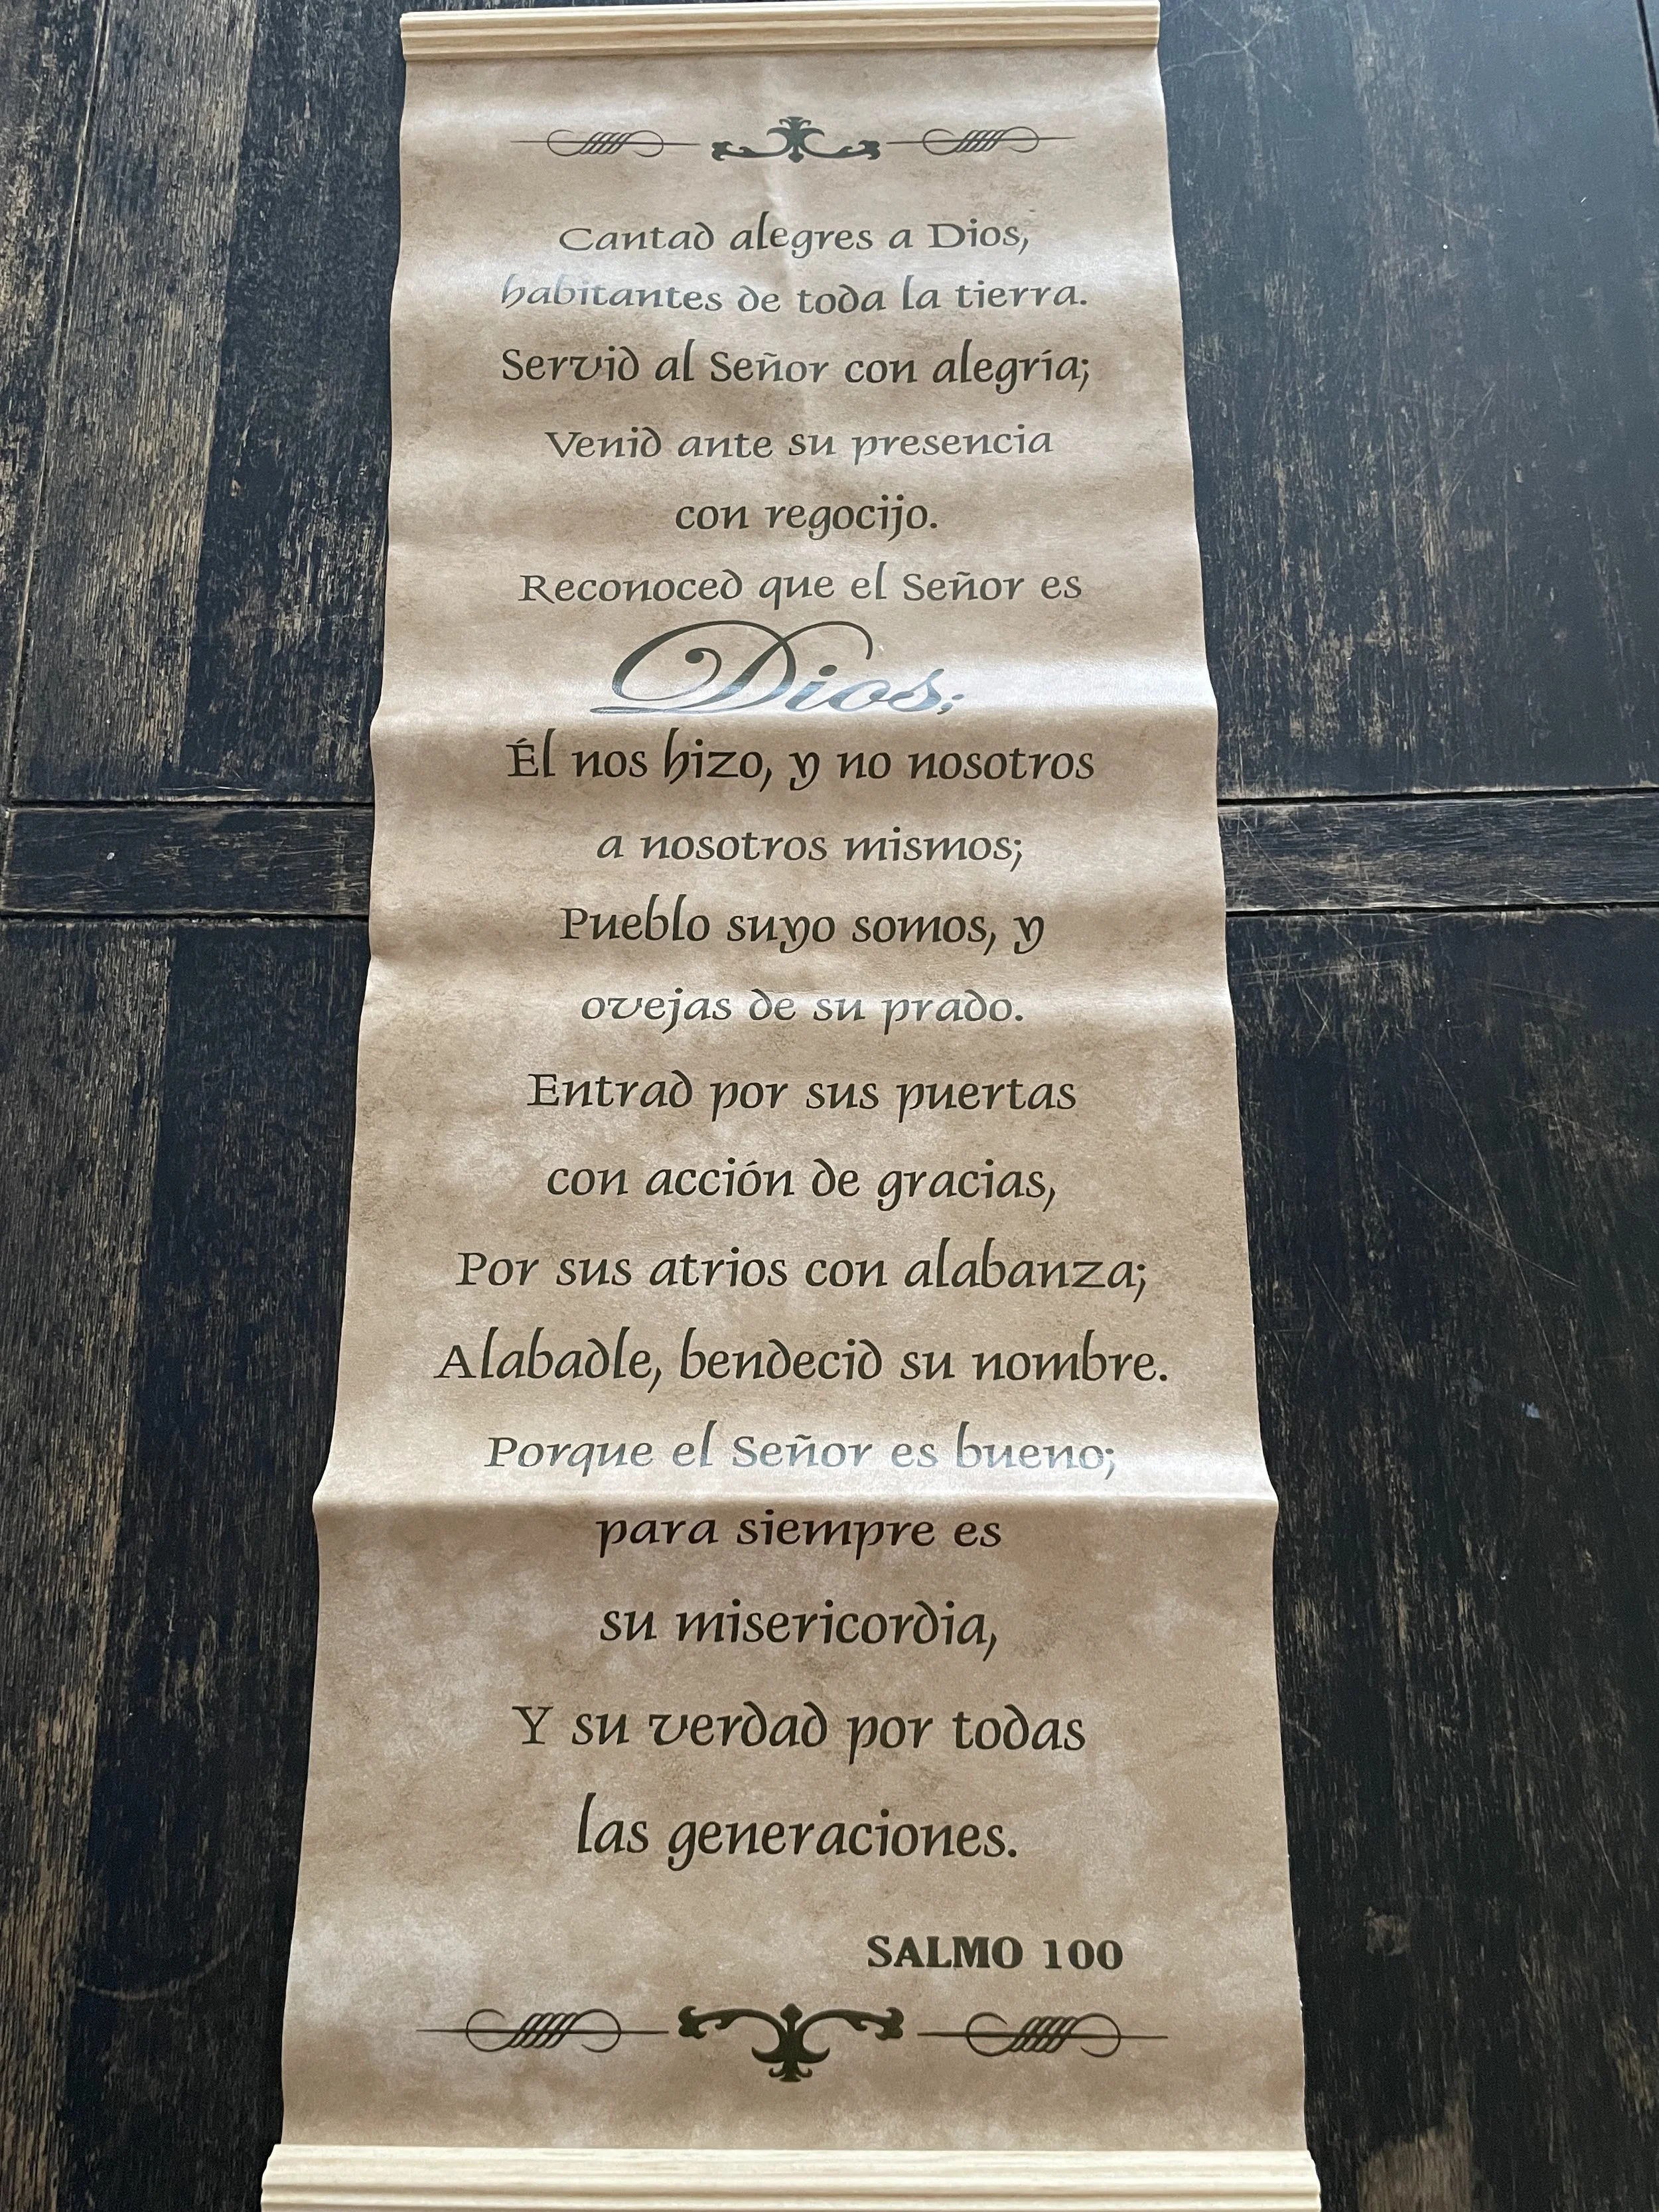 Cantad alegres a Dios,
habitantes de toda la tierra.
Servid al Señor con alegría;
Venid ante su presencia
con regocijo.
Reconoced que el Señor es
Dios;
Él nos hizo, y no nosotros
a nosotros mismos;
Pueblo suyo somos, y
ovejas de su prado.
Entrad por sus puertas
con acción de gracias,
Por sus atrios con alabanza;
Alabadle, bendecid su nombre.
Porque el Señor es bueno;
para siempre es
su misericordia,
Y su verdad por todas
las generaciones.
SALMO 100